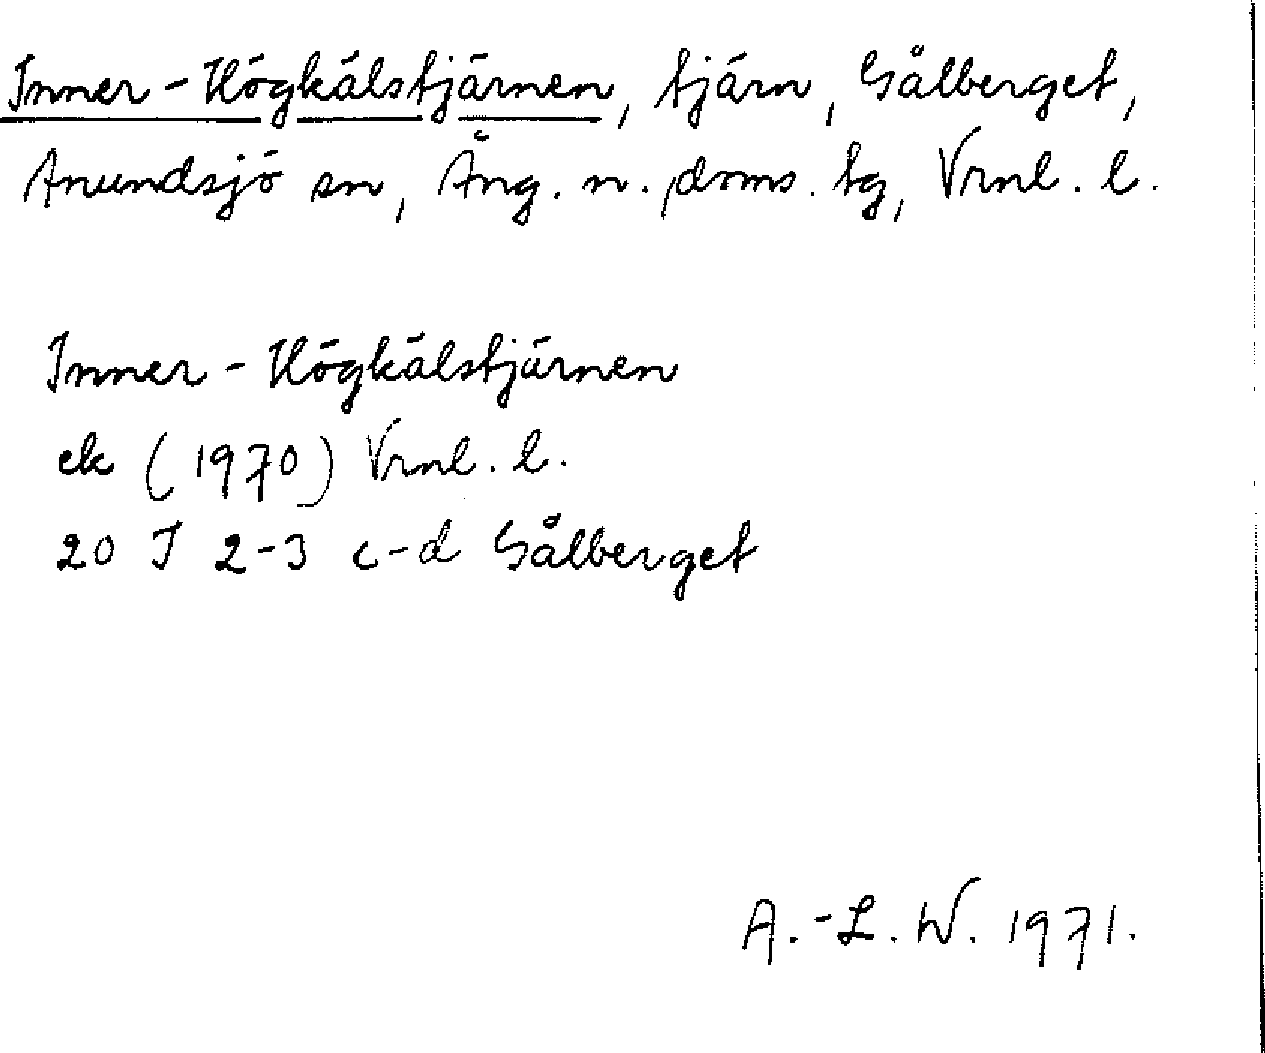 Inner-Högkälstjärnen, tjärn, Sålberget,
Anundsjö sn, Ång. n. doms. tg, Vrnl. l.
Inner-Högkälstjärnen
ek (1970) Vrnl. l.
20 I 2-3 c-d Sålberget
A.-L. W. 1971.